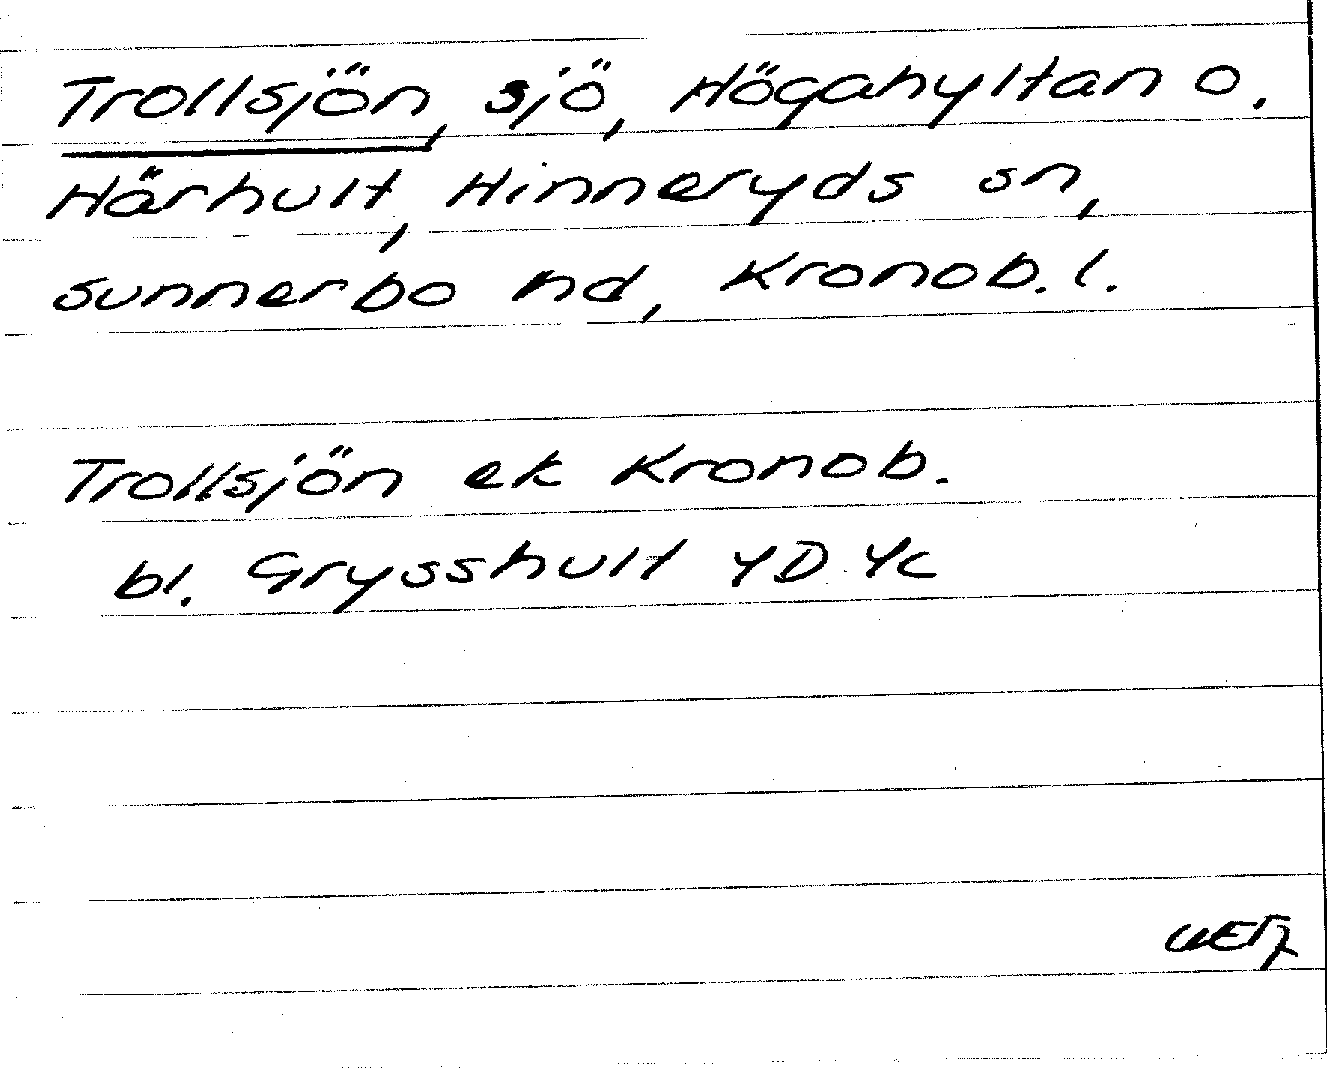 Trollsjön, sjö, Högahyltan o.
Härhult, Hinneryds sn,
Sunnerbo hd, Kronob. l.
Trollsjön ek Kronob.
bl. Grysshult 4D 4c